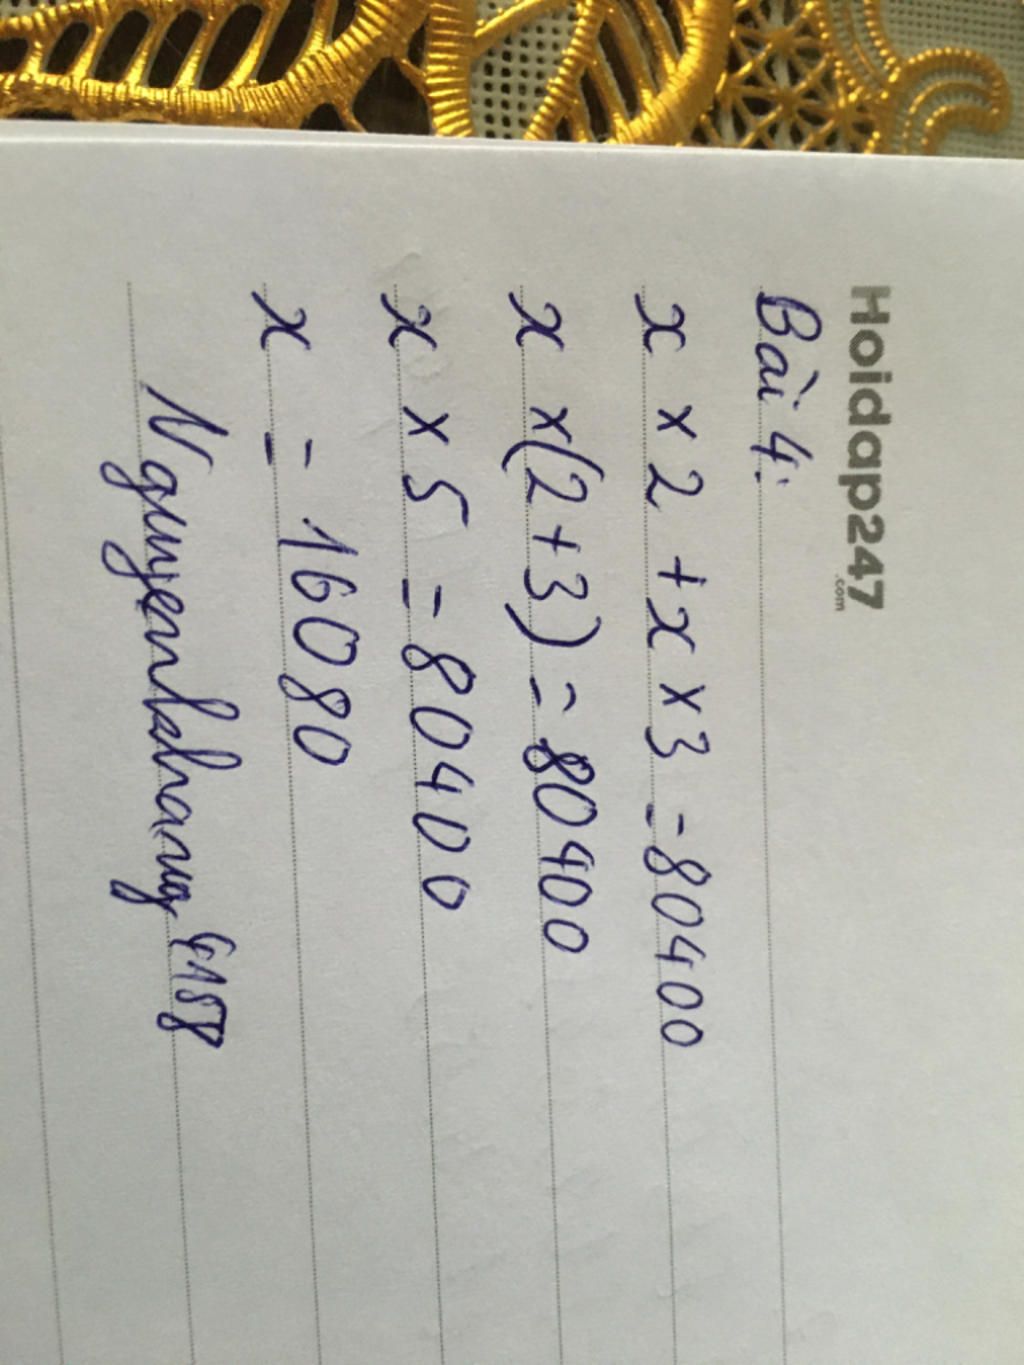 Hoidap247
.com
Bài 4:
x x 2 + x x 3 = 80400
x x (2 + 3) = 80400
x x 5 = 80400
x = 16080
Nguyenkhang 4158